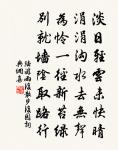 淡日輕雲未快晴
涓涓溝水去無聲
為憐一徑新苔綠
別就墻陰取路行
陸游雨後散步後園詞